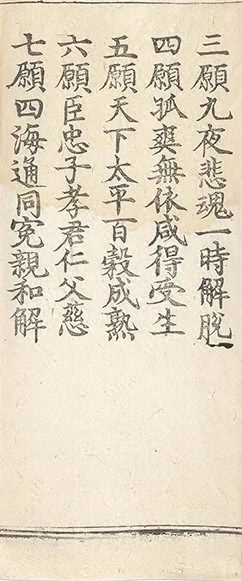 三願九夜悲魂一時解脫
四願孤爽無依咸得受生
五願天下太平百穀成熟
六願臣忠子孝君仁父慈
七願四海通同冤親和解